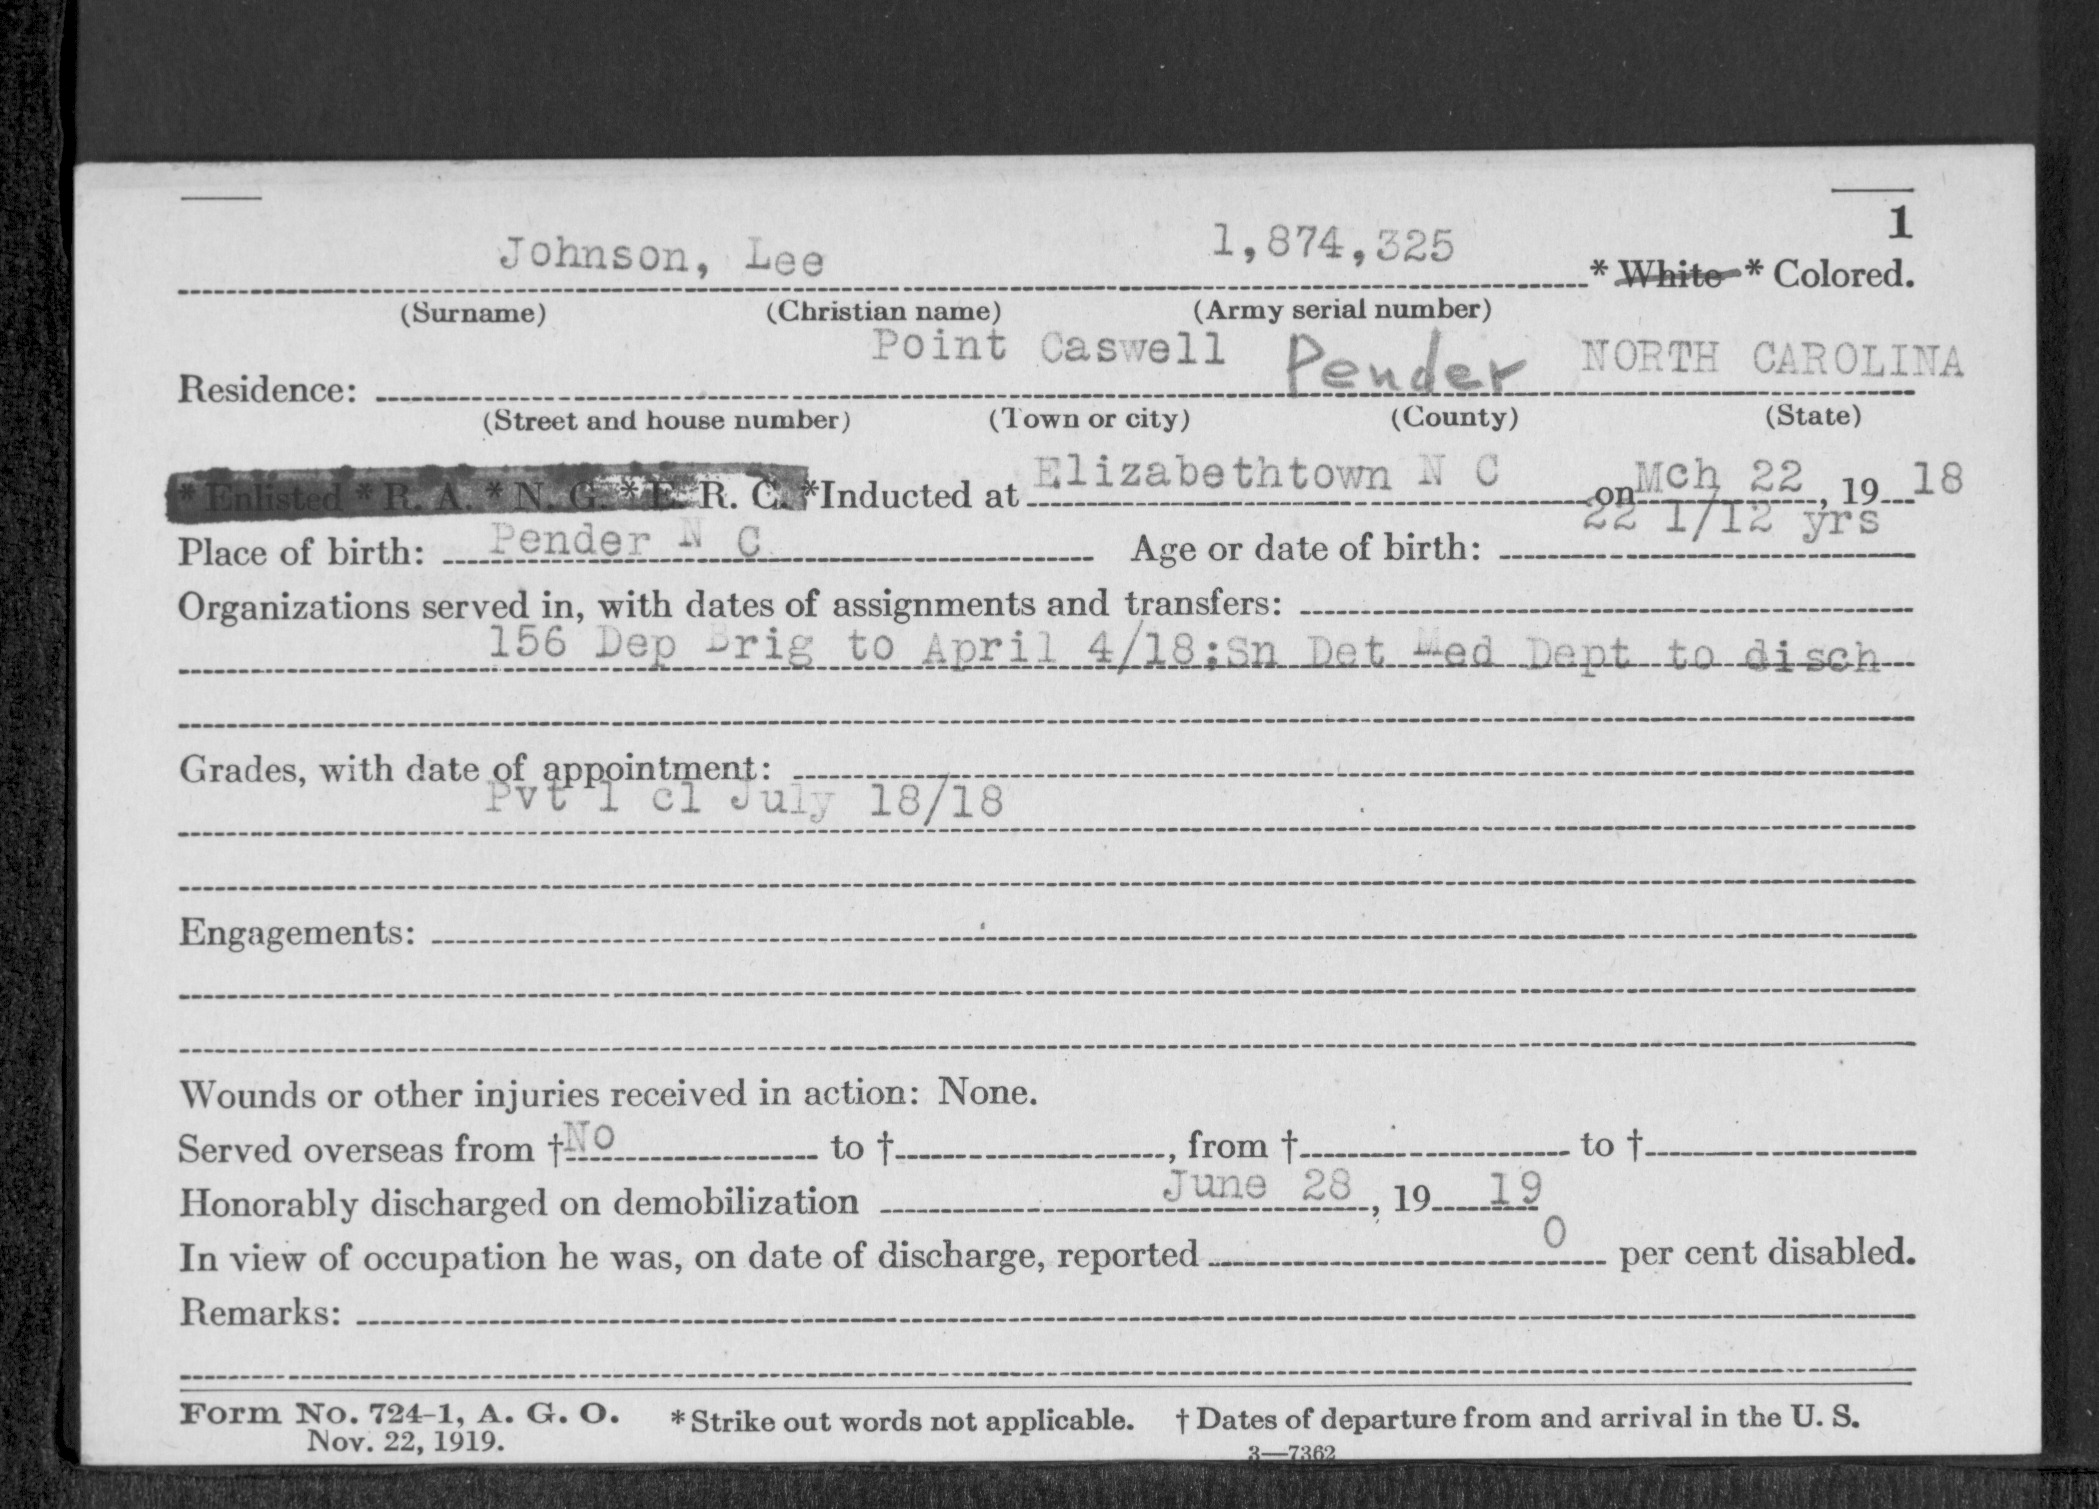 1
Johnson, Lee 1,874,325 * White * Colored.
(Surname) (Christian name) (Army serial number)
Point Caswell Pender NORTH CAROLINA
Residence:
(Street and house number) (Town or city) (County) (State)
* Enlisted * R. A. * N. G. * E. R. C. *Inducted at Elizabethtown N C on Mch 22, 19 18
Place of birth: Pender N C Age or date of birth: 22 1/12 yrs
Organizations served in, with dates of assignments and transfers:
156 Dep Brig to April 4/18;Sn Det Med Dept to disch
Grades, with date of appointment:
Pvt 1 cl July 18/18
Engagements:
Wounds or other injuries received in action: None.
Served overseas from †No to †, from † to †
Honorably discharged on demobilization June 28, 19 19
In view of occupation he was, on date of discharge, reported 0 per cent disabled.
Remarks:
Form No. 724-1, A. G. O. *Strike out words not applicable. † Dates of departure from and arrival in the U. S.
Nov. 22, 1919. 3—7362